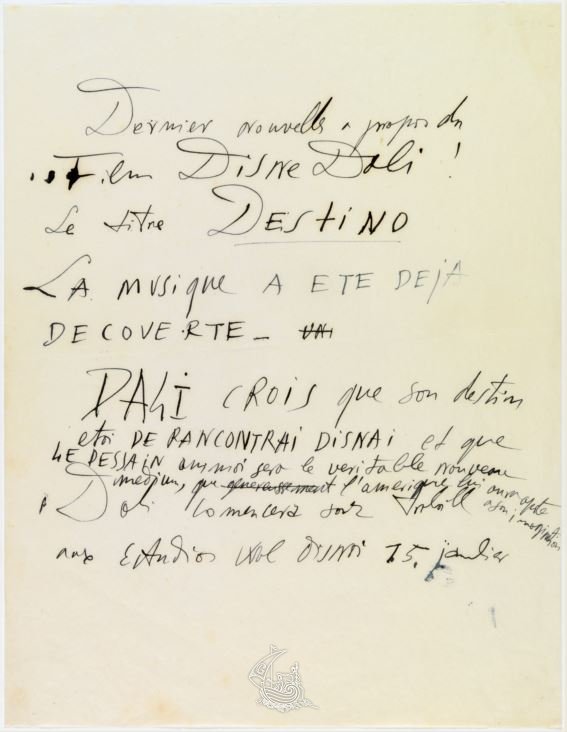 Dernier nouvells a propos du
Film Disne Dali !
Le titre DESTINO
LA MUSIQUE A ETE DEJA
DECOVERTE –
DALI CROIS que son destin
etoi DE RANCONTRAI DISNAI et que
LE DESSAIN animoi sera le veritable nouveau
medium, que genereusement l'amerique lui aura apte
a son imagination
Dali Comencera son traball
aux Estudios Wol DISNAI 15, janvier